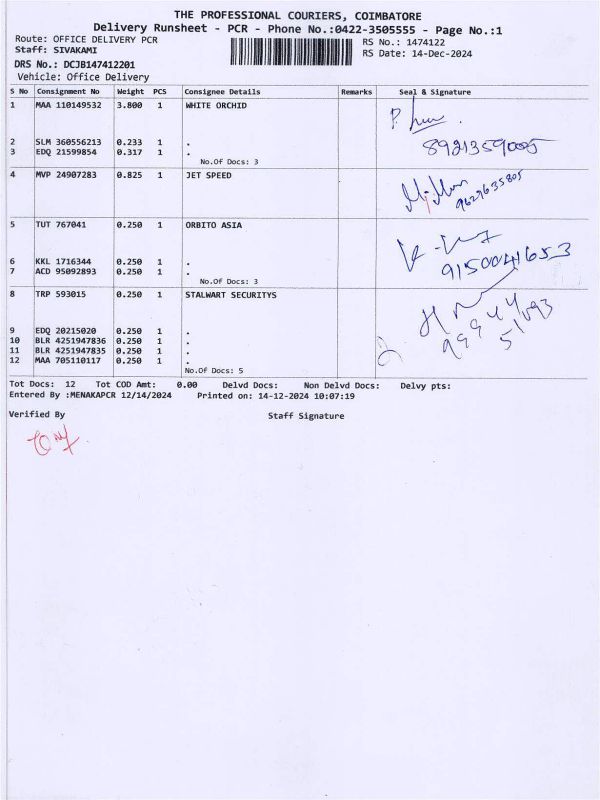 THE PROFESSIONAL COURIERS, COIMBATORE
Delivery Runsheet - PCR - Phone No.:0422-3505555 - Page No.:1
Route: OFFICE DELIVERY PCR
RS No.: 1474122
Staff: SIVAKAMI
RS Date: 14-Dec-2024
DRS No.: DCJB147412201
Vehicle: Office Delivery
S No Consignment No Weight PCS Consignee Details Remarks Seal & Signature
1 MAA 110149532 3.800 1 WHITE ORCHID
2 SLM 360556213 0.233 1 .
8921359005
3 EDQ 21599854 0.317 1 .
No.Of Docs: 3
4 MVP 24907283 0.825 1 JET SPEED
9629635805
5 TUT 767041 0.250 1 ORBITO ASIA
9150041653
6 KKL 1716344 0.250 1 .
7 ACD 95092893 0.250 1 .
No.Of Docs: 3
8 TRP 593015 0.250 1 STALWART SECURITYS
9 EDQ 20215020 0.250 1 .
10 BLR 4251947836 0.250 1 .
11 BLR 4251947835 0.250 1 .
12 MAA 705110117 0.250 1 .
No.Of Docs: 5
Tot Docs: 12 Tot COD Amt: 0.00 Delvd Docs: Non Delvd Docs: Delvy pts:
Entered By :MENAKAPCR 12/14/2024 Printed on: 14-12-2024 10:07:19
Verified By Staff Signature